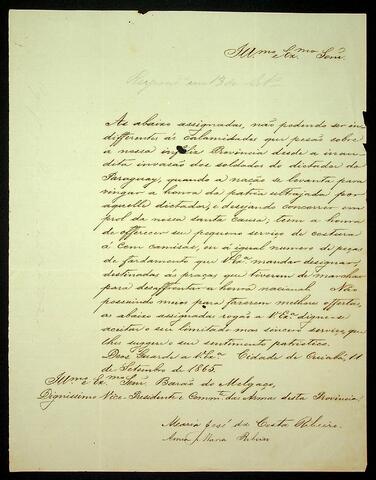 Ill.mo e Ex.mo Senr.
As abaixo assignadas, não podendo ser in
differentes ás calamidades que pesão sobre
a nossa infeliz Provincia desde a inau
dita invasão dos soldados do dictador do
Paraguay, quando a nação se levanta para
vingar a honra da patria ultrajada por
aquelle dictador, e desejando concorrer em
prol da nossa santa causa; tem a honra
de offerecer seu pequeno serviço de costura
á cem camisas, ou á igual numero de peças
de fardamento que V Ex.a mandar designar,
destinadas ás praças que tiverem de marchar
para desaffrontar a honra nacional. Não
possuindo meios para fazerem melhores offertas,
as abaixo assignadas rogão a V Ex.a digne-se
aceitar o seu limitado mas sincero serviço, que
lhes suggere o seu sentimento patriotico.
Deos Guarde a V Ex.a Cidade de Cuiabá, 11
de Setembro de 1865.
Ill.mo e Ex.mo Senr. Barão de Melgaço,
Dignissimo Vice-Presidente e Comm.te das Armas desta Provincia
Maria José da Costa Ribeiro.
Anna Ribeiro